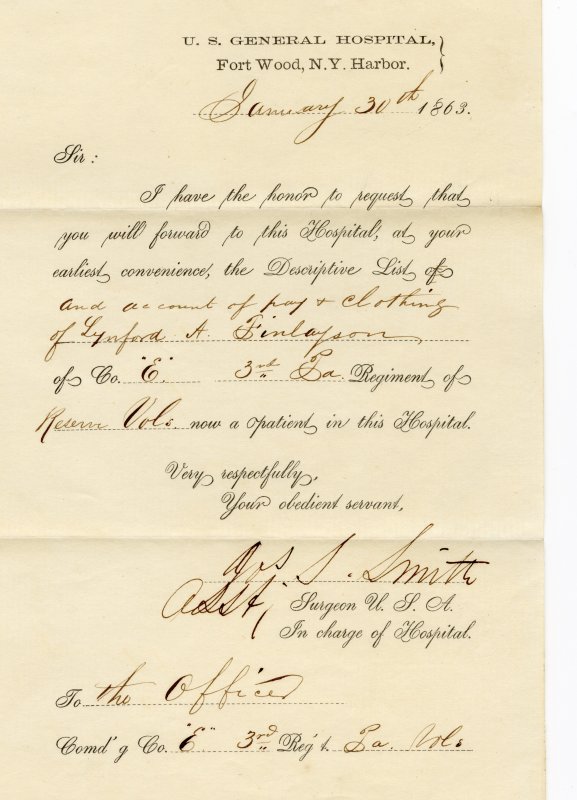 U. S. GENERAL HOSPITAL,
Fort Wood, N.Y. Harbor.
January 30th 1863.
Sir:
I have the honor to request that
you will forward to this Hospital, at your
earliest convenience, the Descriptive List of
and account of pay & clothing
of Lynford A. Finlayson,
of Co. "E" 3rd Pa. Regiment of
Reserve Vols. now a patient in this Hospital.
Very respectfully,
Your obedient servant,
S. Smith
Asst Surgeon U. S. A.
In charge of Hospital.
To the Officer
Comd'g Co. "E" 3rd Reg't. Pa. Vols